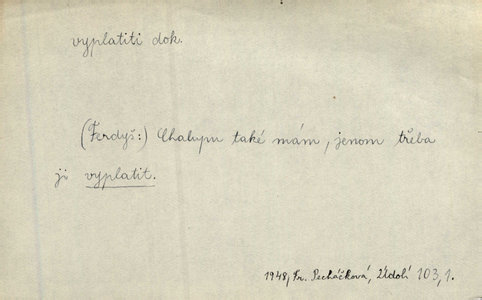 vyplatiti dok.
(Ferdyš:) Chalupu také mám, jenom třeba
ji vyplatit.
1948, Fr. Pecháčková, Údolí 103, 1.